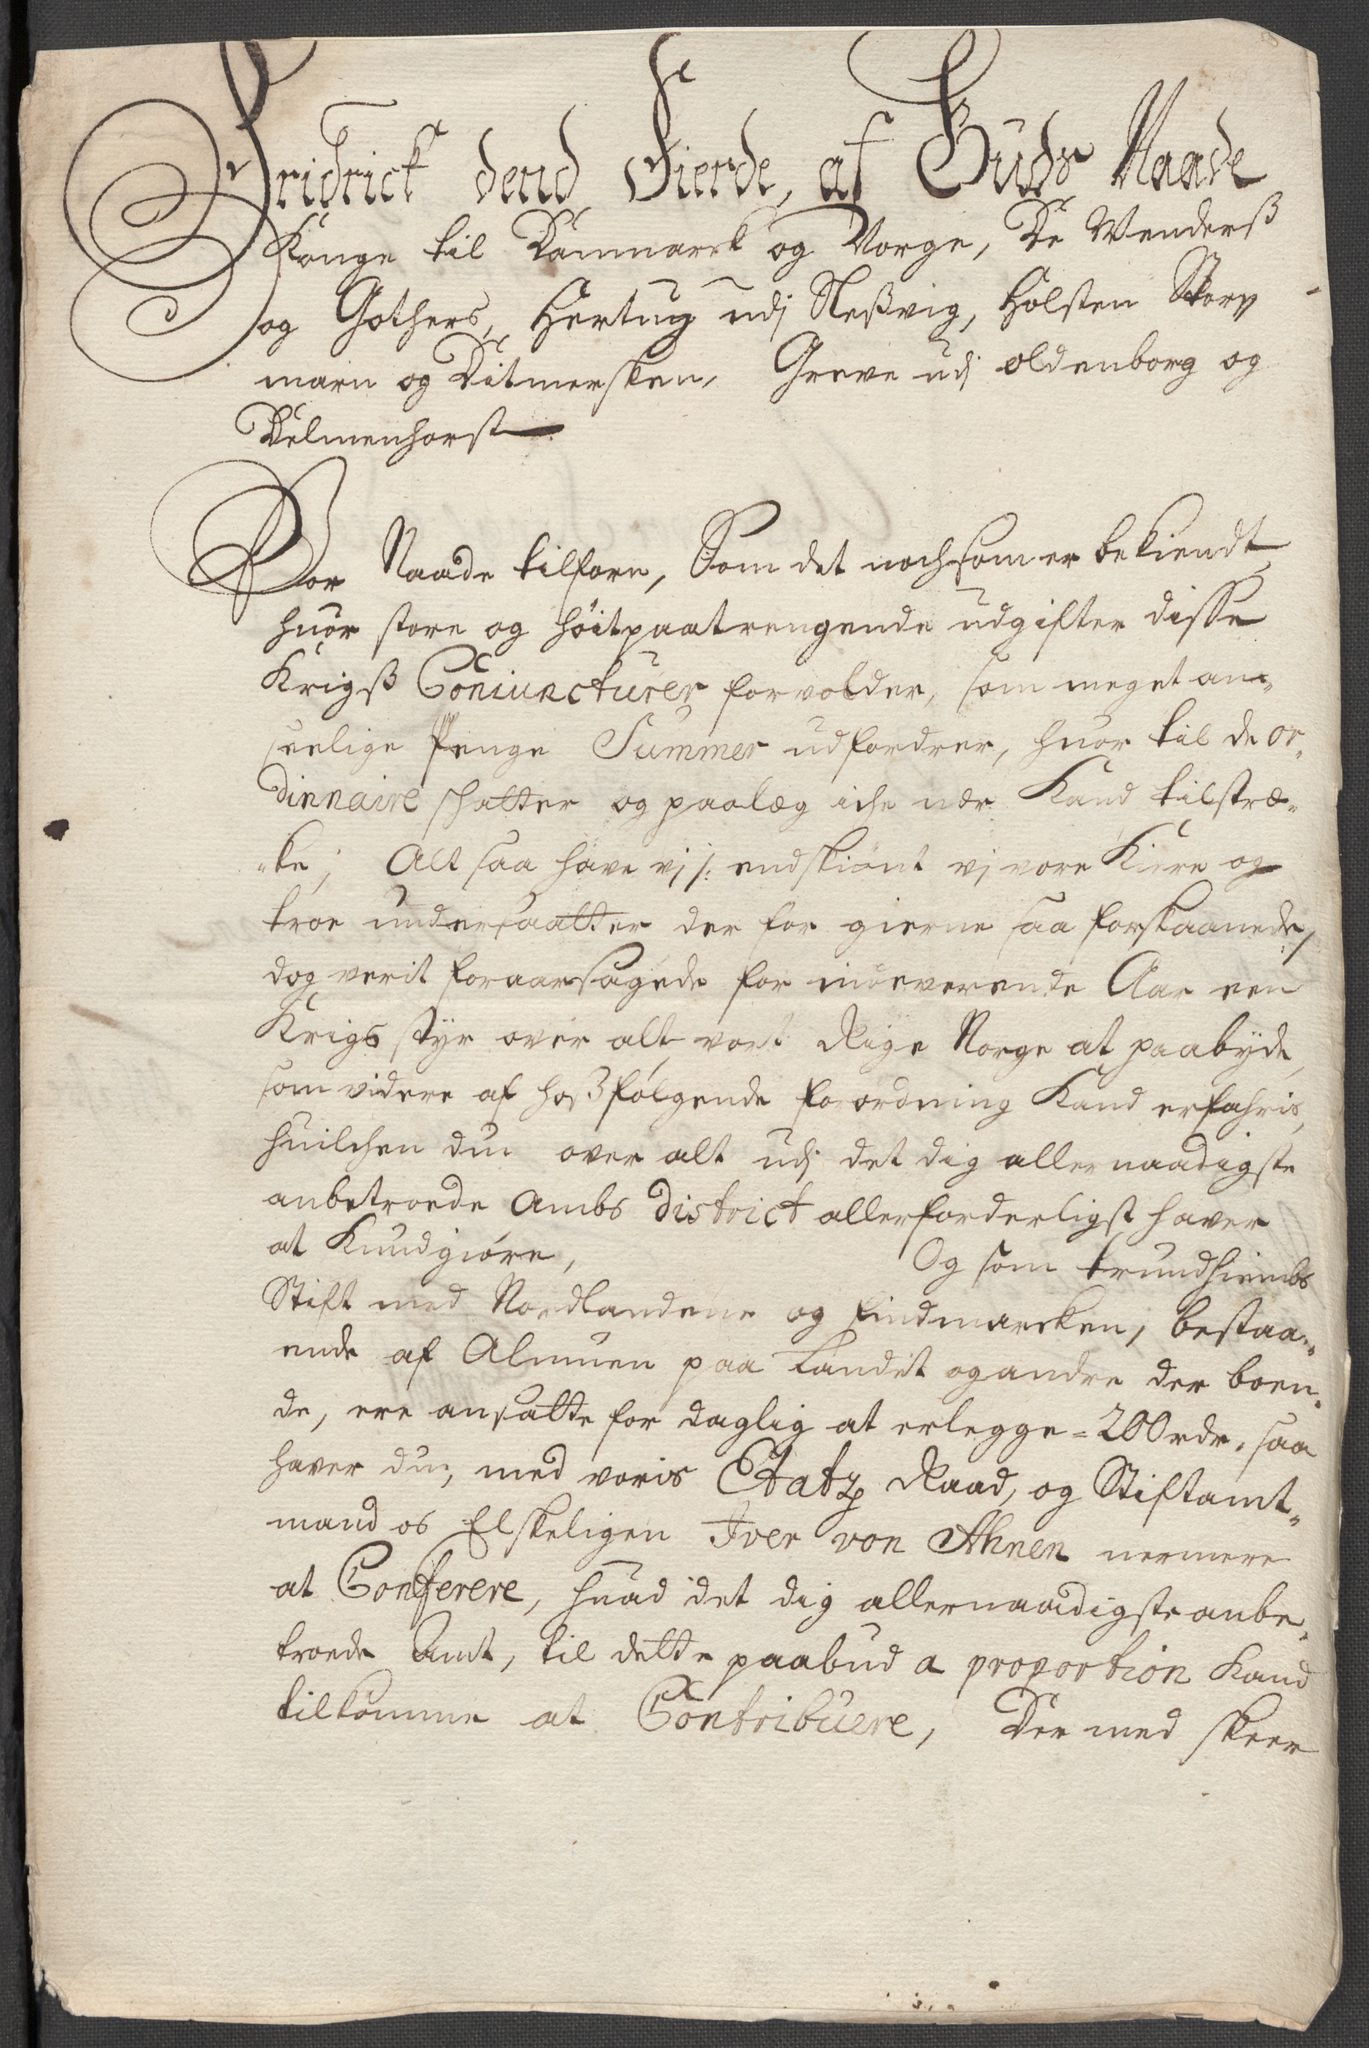 Fridrick dend Fierde, af Guds Naade
Konge til Danmarck og Norge, De Wenderß
og Gothers, Hertug udj Sleßvig, Holsten Stor
marn og Ditmersken, Greve udj oldenborg og
Delmenhorst
Vor Naade tilforn, Som det nochsom er bekiendt
huor store og höitpaatrengende udgifter disse
Krigß Coniuncturer forvolder, som meget an-
seelige Penge Summer udfordrer, huor til de or-
dinnaire skatter og paalæg iche nær Kand tilstræ-
cke; Alt saa have vj /: endskiönt vj vore Kiere og
troe undersaatter der for gierne saa forskaanede /
dog verit foraarsagede for indeverende Aar een
Krigs styr over alt vort Rige Norge at paabyde,
som videre af hoßfölgende forordning Kand erfahris,
huilchen du over alt udj det dig allernaadigste
anbetroede Ambs District allerforderligst haver
at Kundgiöre, Og som trundhiembs
Stift med Nordlandene og findmarcken, bestaa-
ende af Almuen paa Landet og andre der boen-
de, ere ansatte for daglig at erlegge = 200 rdr. saa
haver du, med voris Etatz Raad, og Stiftamt-
mand os Elskeligen Iver von Ahnen nermere
at Conferere, huad det dig allernaadigste anbe-
troede Amt, til dette paabud a proportion Kand
tilkomme at Contribuere, Der med skeer